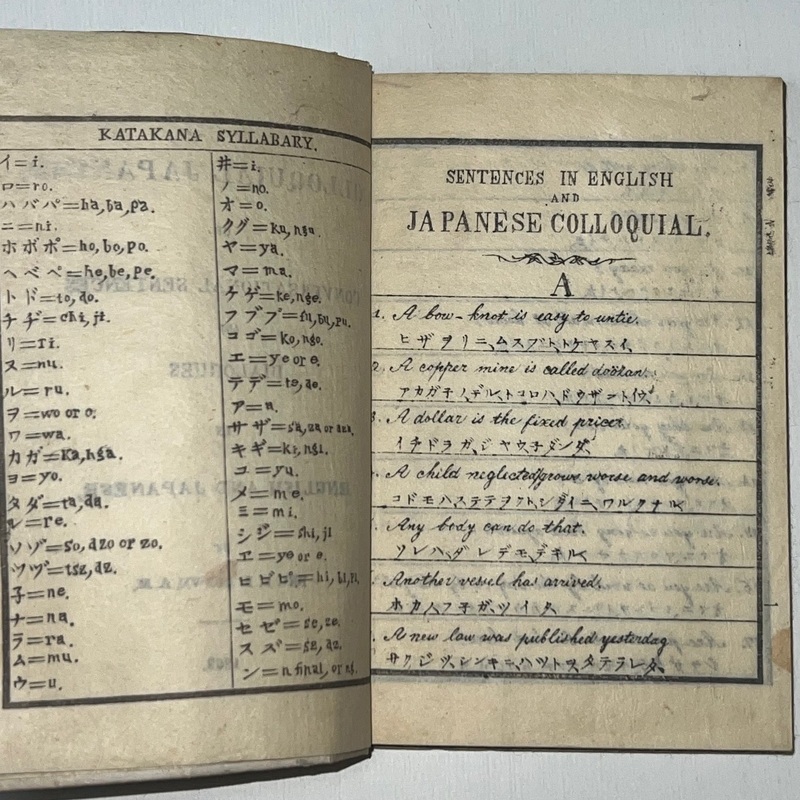 KATAKANA SYLLABARY.
イ=i.
ロ=ro.
ハバパ=ha, ba, pa.
ニ=ni.
ホボポ=ho, bo, po.
ヘベペ=he, be, pe.
トド=to, do.
チヂ=chi, ji.
リ=ri.
ヌ=nu.
ル=ru.
ヲ=wo or o.
ワ=wa.
カガ=ka, nga.
ヨ=yo.
タダ=ta, da.
レ=re.
ソゾ=so, dzo or zo.
ツヅ=tsz, dz.
子=ne.
ナ=na.
ラ=ra.
ム=mu.
ウ=u.
井=i.
ノ=no.
オ=o.
クグ=ku, nga.
ヤ=ya.
マ=ma.
ケゲ=ke, nge.
フブプ=fu, bu, pu.
コゴ=ko, ngo.
エ=ye or e.
テデ=te, de.
ア=a.
サザ=sa, za or
キギ=ki, ngi.
ユ=yu.
メ=me.
ミ=mi.
シジ=shi, ji
ヱ=ye or e.
ヒビピ=hi, bi, pi.
モ=mo.
セゼ=se, ze.
スズ=sz, dz.
ン=n final, or ng.
SENTENCES IN ENGLISH
AND
JAPANESE COLLOQUIAL.
A
1. A bow-knot is easy to untie.
ヒザヲリニ、ムスブト、トケヤスイ
2. A copper mine is called doözan.
アカガ子ノ、デル、トコロハ、ドウザント、イウ
3. A dollar is the fixed price.
イチドラガ、ジヤウ子ダンダ
A child neglected, grows worse and worse.
コドモハ、ステテヲクト、シダイニ、ワルクナル
Any body can do that.
ソレハ、ダレデモ、デキル
Another vessel has arrived.
ホカノ、フ子ガ、ツイタ
A new law was published yesterday
サクジツ、シンキニ、ハツトヲ、タテラレタ